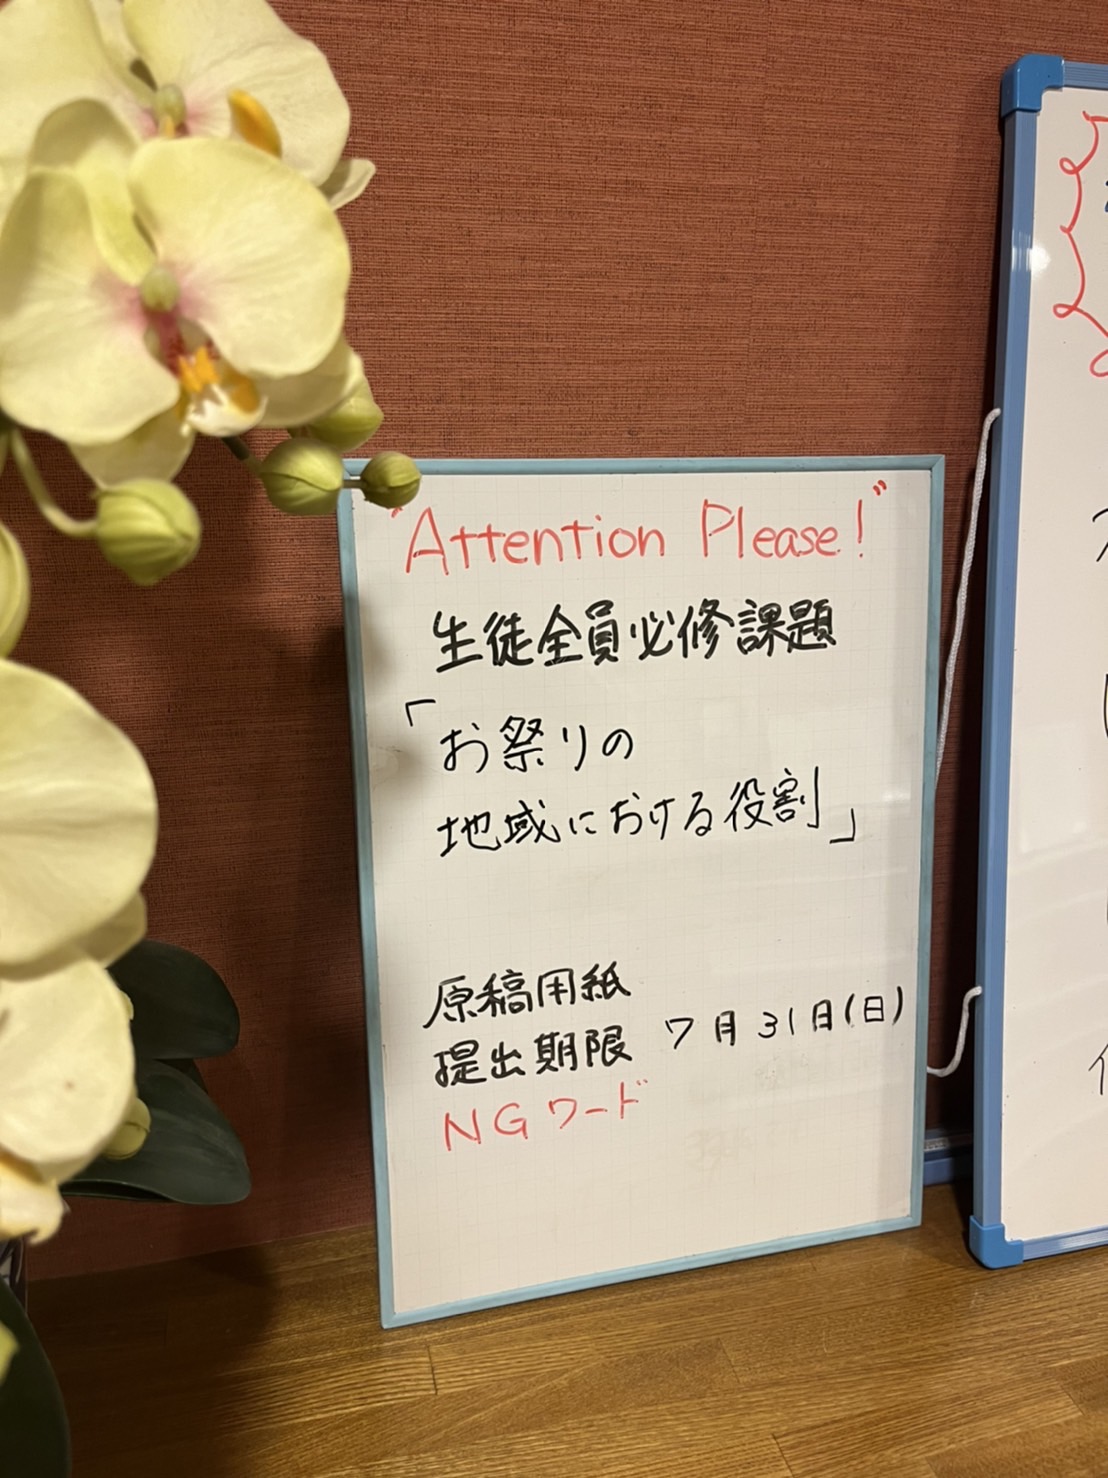 "Attention Please!"
生徒全員必修課題
「お祭りの
地域における役割」
原稿用紙
提出期限 7月31日(日)
NGワード